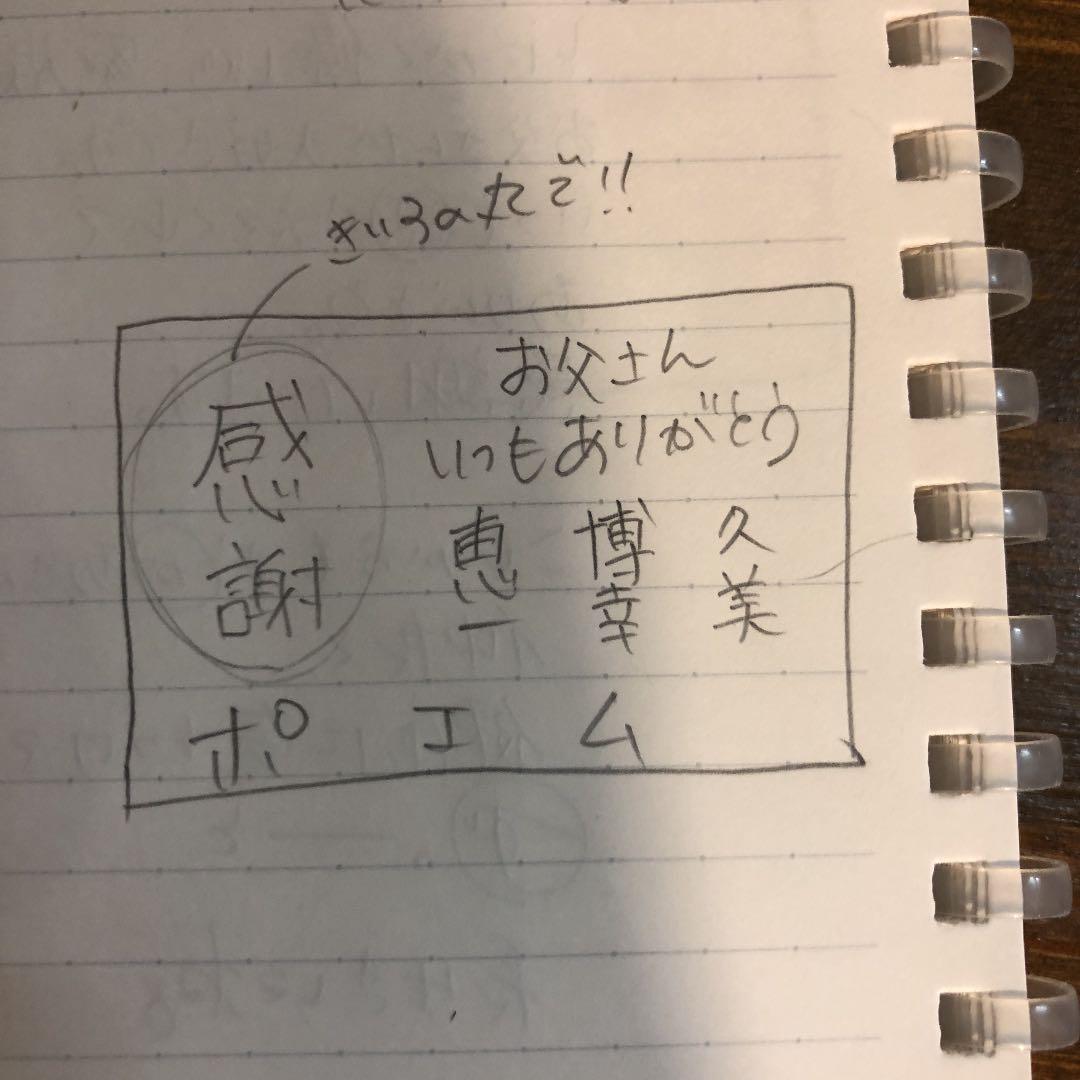 きいろのたて!!
お父さん
いつもありがとう
感謝
恵一
博幸
久美
ポエム